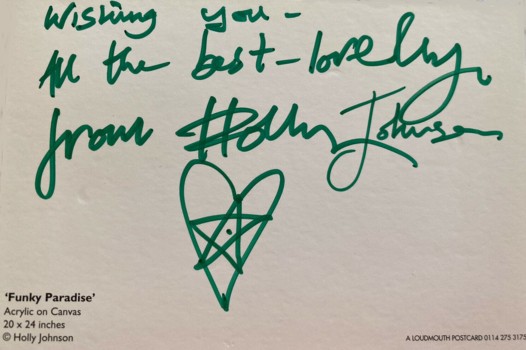 Wishing you -
All the best - lovely
from Holly Johnson
'Funky Paradise'
Acrylic on Canvas
20 x 24 inches
© Holly Johnson
A LOUDMOUTH POSTCARD 0114 275 3175